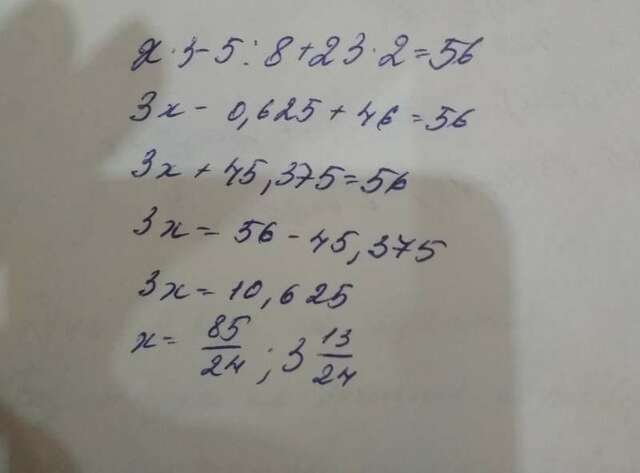 x·3-5:8+23·2=56
3x-0,625+46=56
3x+45,375=56
3x=56-45,375
3x=10,625
x=85/24; 3 13/24